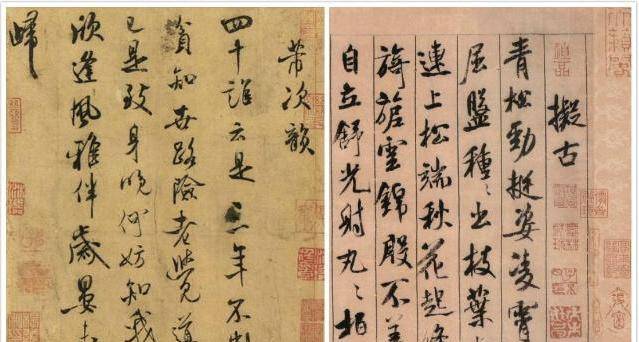 次韻
四十誰云是三年不
貧知世路險老覺道
已是致身晚何妨知我
欣逢風雅伴歲晏未
歸
擬古
青松勁挺姿凌霄
屈盤種〻出枝葉
連上松端秋花起絳
旖旎雲錦殷不羞
自立舒光射丸〻柏